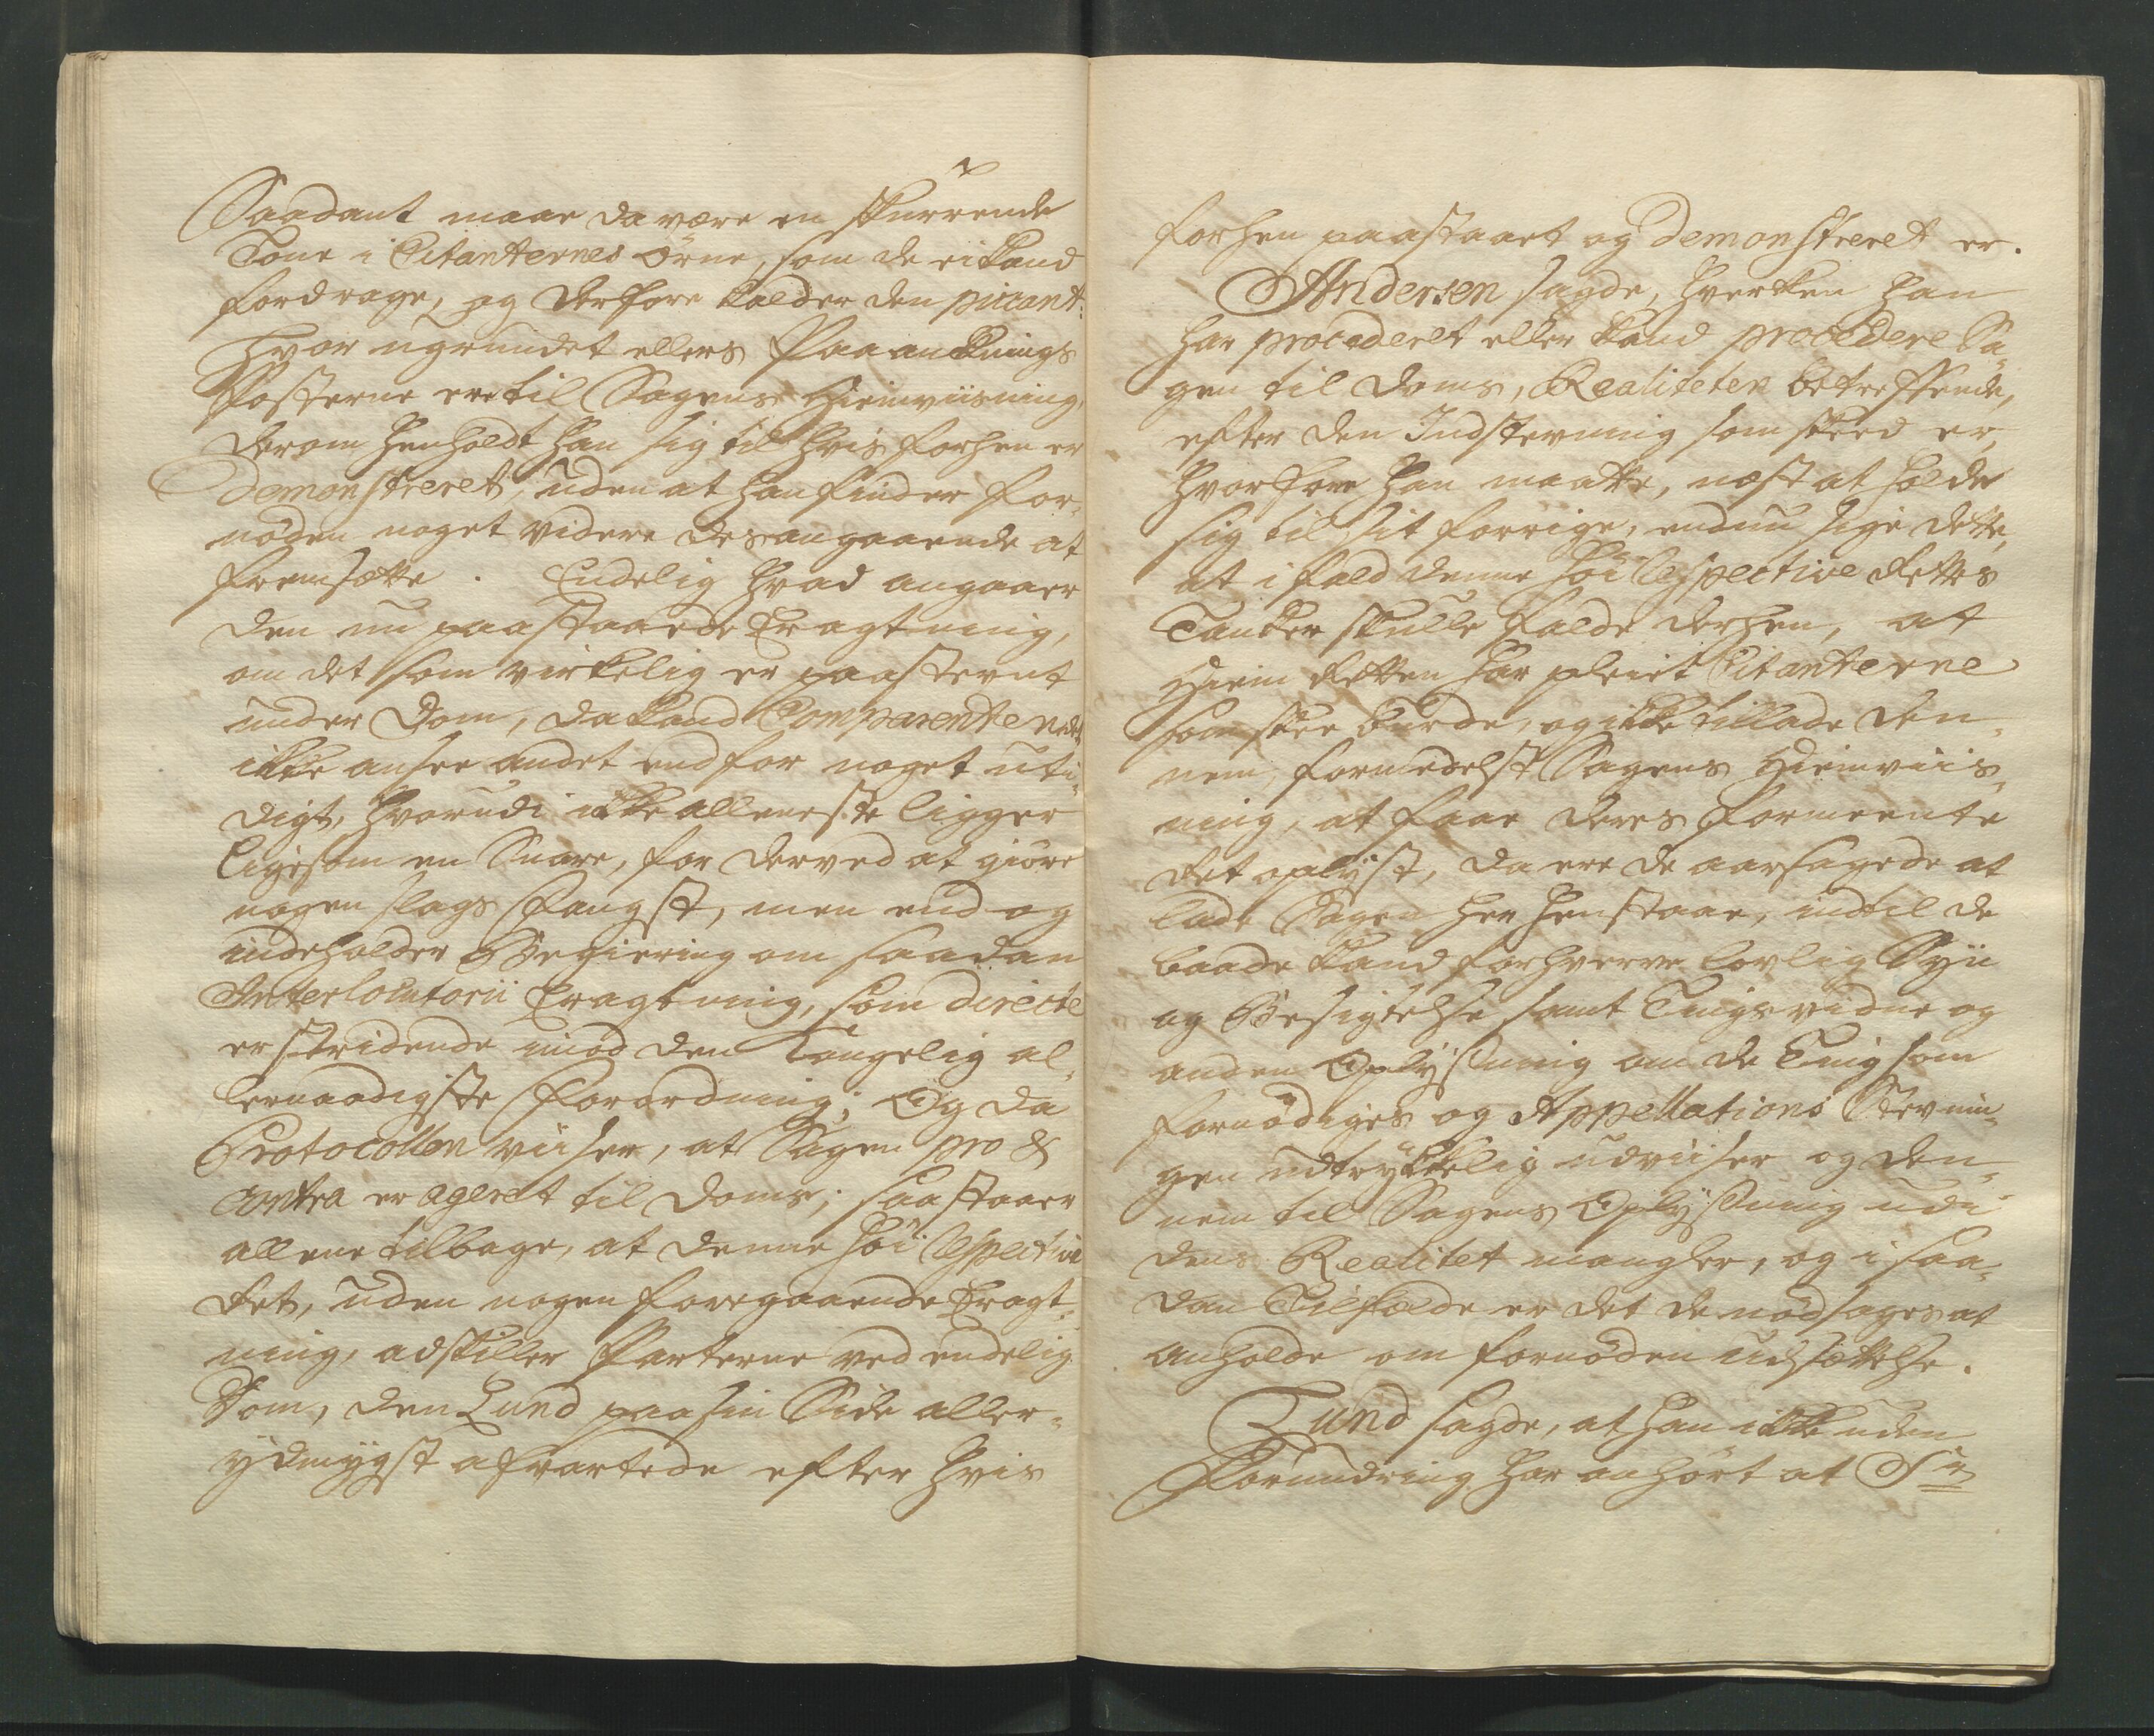 Saadant maae da være en skurrende
Tone i Citanternes Ørne, som de ei kand
fordrage, og derfore kalder den piccant.
Hvor ugrundet ellers Paaanknings
Posterne ere til Sagens Hiemviisning,
derom henholdt han sig til hvis forhen er
demonstreret, uden at han finder for-
nøden noget videre desangaaende at
fremsætte. Endelig hvad angaaer
den nu paastaaede Eragtning,
om det som virkelig er paastevnt
under Dom, da kand Comparenten det
ikke ansee andet end for noget uti-
digt, hvorudi ikke alleneste ligger
ligesom en Snare, for derved at giøre
nogen slags Fangst, men end og
indeholder Begiering om saadan
Interlocutorii Eragtning, som directe
er stridende imod den Kongelig al-
lernaadigste Forordning; Og da
Protocollen viiser, at Sagen pro &
contra er ageret til Doms; saa staaer
allene tilbage, at denne høi respective
Ret, uden nogen foregaaende Eragt-
ning, adskiller Parterne ved endelig
Dom, den Lund paa sin Side aller-
ydmygst afvartede efter hvis
forhen paastaaet og demonstreret er.
Andersen sagde, hverken han
har procederet eller kand procedere Sa-
gen til Doms, Realiteten betreffende,
efter den Indstevning som skeed er,
hvorfore han maatte, næst at holde
sig til sit forrige, endnu sige dette,
at i fald denne høi respective Rettes
Tanker skulle falde derhen, at
Hiem Retten har pleiet Citanterne
som skee burde, og ikke tillade den-
nem, formedelst Sagens Hiemviis-
ning, at faae deres formeente
Ret oplyst, da ere de aarsagede at
lade Sagen her henstaae, indtil de
baade kand forhverve lovlig Syn
og Besigtelse samt Tingsvidne og
anden Oplysning om de Ting som
fornødiges og Appellations Stevnin-
gen udtrykkelig udviiser og den-
nem til Sagens Oplysning udi
dens Realitet mangler, og i saa-
dan Tilfælde er det de nødsages at
anholde om fornøden udsættelse.
Lund sagde, at han ikke uden
Forundring har anhørt at Sr